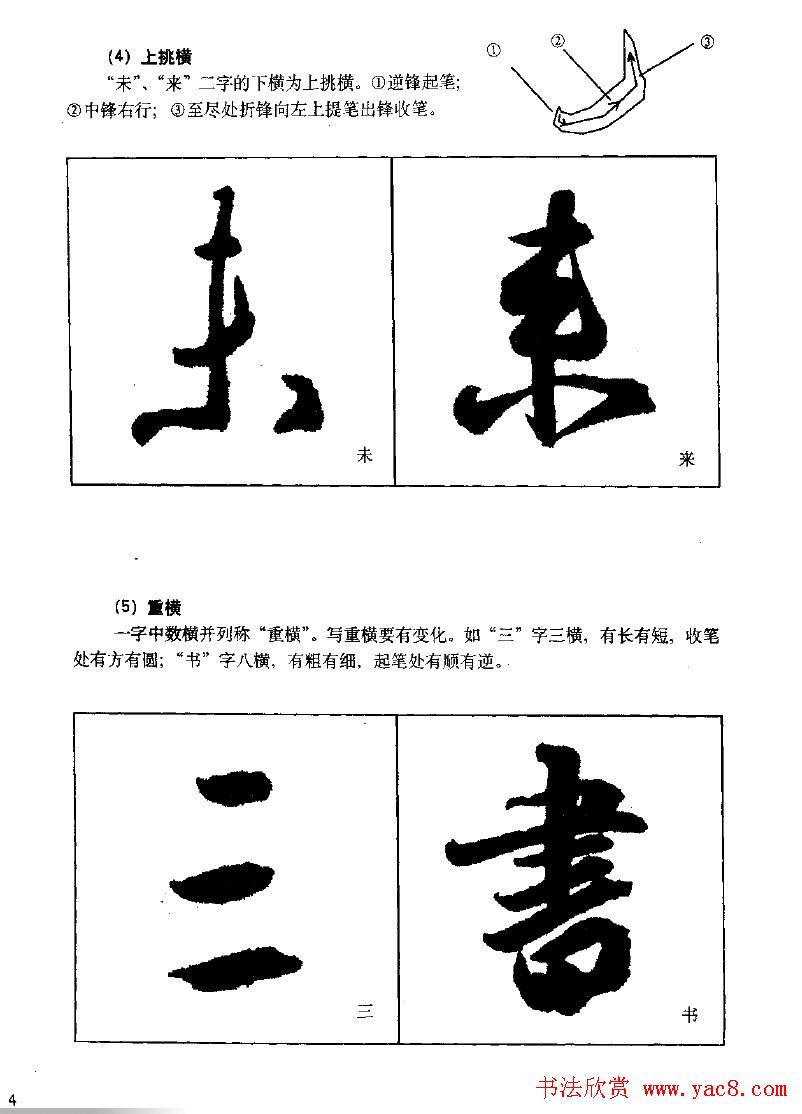 (4) 上挑横
① ② ③
“未”、“来”二字的下横为上挑横。①逆锋起笔;
②中锋右行; ③至尽处折锋向左上提笔出锋收笔。
未 来
未 来
(5) 重横
一字中数横并列称“重横”。写重横要有变化。如“三”字三横，有长有短，收笔
处有方有圆; “书”字八横，有粗有细，起笔处有顺有逆。
三 書
三 书
4
书法欣赏 www.yac8.com